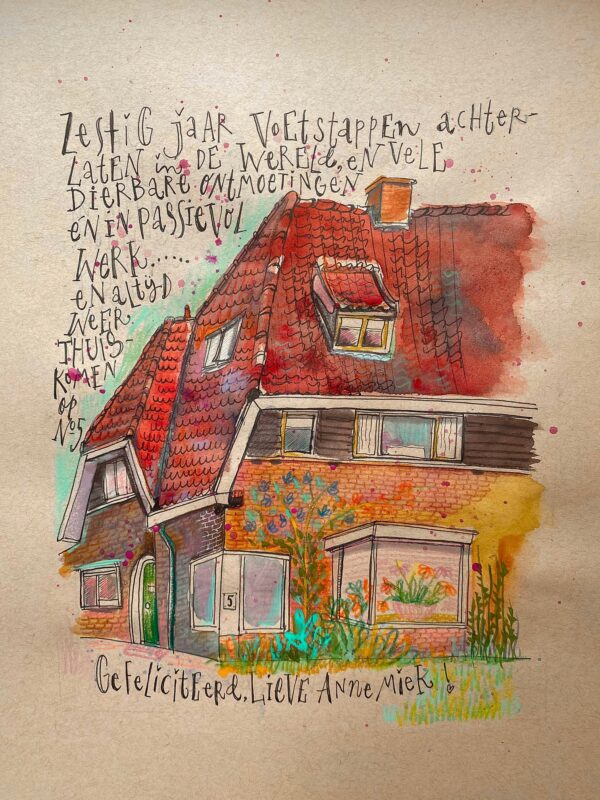 ZestiG jAAR VoEtstAppEn AchtER-
ZATEn in DE WERELd, EN VELE
DIERBARE ONTMOETINGEN
ÉN IN PASSIEVOL
WERK......
EN ALTyD
WEER
THUIS-
KoMEN
op
No5
5
GEFELiCitEERd, LiEVE ANNEMiEk!